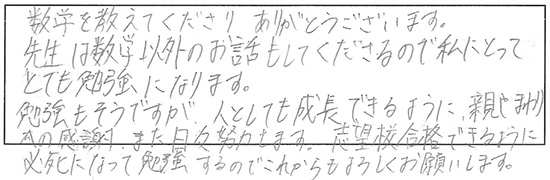 数学を教えてくださり ありがとうございます。
先生は数学以外のお話もしてくださるので私にとって
とても勉強になります。
勉強もそうですが 人としても成長できるように、親やまわり
への感謝、また日々努力します。志望校合格できるように
必死になって勉強するのでこれからもよろしくお願いします。